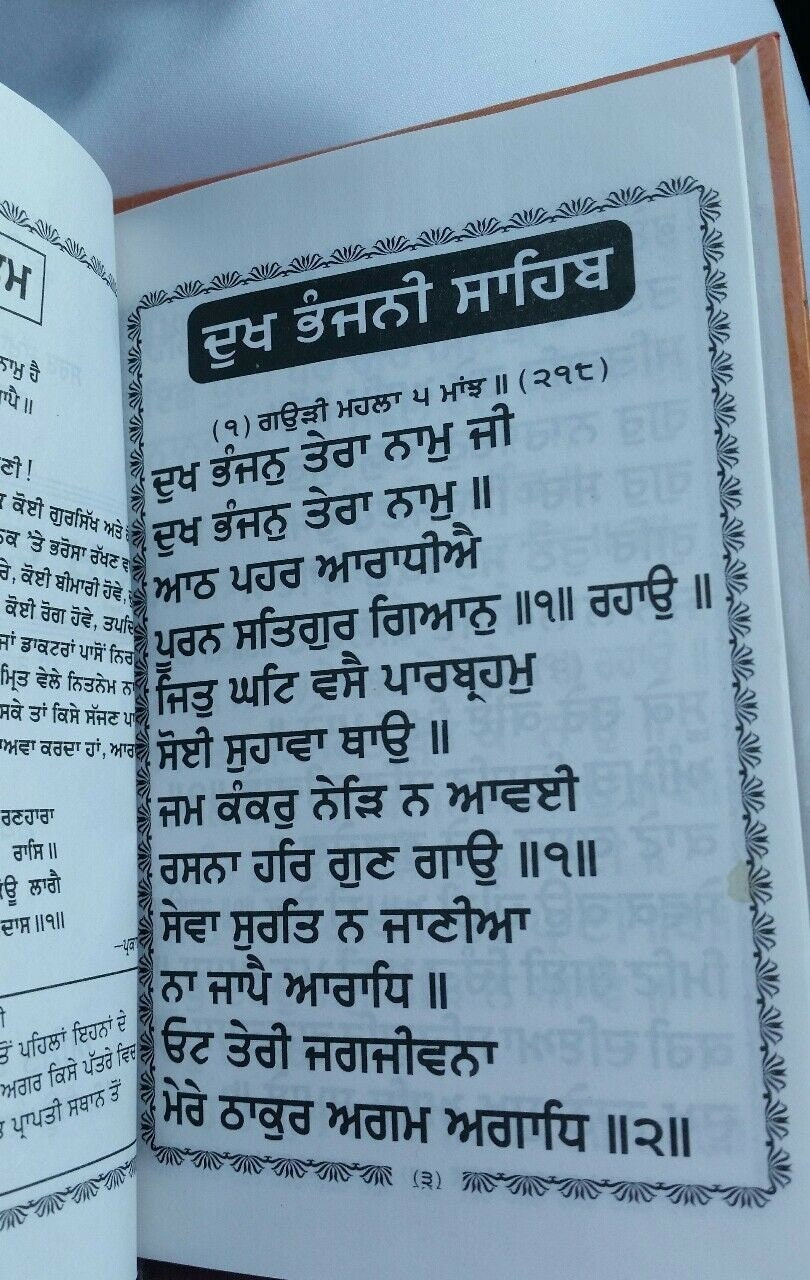 ਨਾਮੁ ਹੈ
ਣੀ !
ਕੋਈ ਗੁਰਸਿੱਖ ਅਤੇ
'ਤੇ ਭਰੋਸਾ ਰੱਖਣ
ਕੋਈ ਬੀਮਾਰੀ ਹੋਵੇ,
ਕੋਈ ਰੋਗ ਹੋਵੇ,
ਜਾਂ ਡਾਕਟਰਾਂ ਪਾਸੋਂ
ਵੇਲੇ ਨਿਤਨੇਮ
ਸਕੇ ਤਾਂ ਕਿਸੇ ਸੱਜਣ
ਕਰਦਾ ਹਾਂ,
ਰਾਸਿ ॥
ਲਾਗੈ
ਦਾਸ ॥੧॥
ਪਹਿਲਾਂ ਇਹਨਾਂ ਦੇ
ਅਗਰ ਕਿਸੇ ਪੱਤਰੇ ਵਿਚ
ਪ੍ਰਾਪਤੀ ਸਥਾਨ ਤੋਂ
ਦੁਖ ਭੰਜਨੀ ਸਾਹਿਬ
(੧) ਗਉੜੀ ਮਹਲਾ ੫ ਮਾਂਝ ॥ (੨੧੮)
ਦੁਖ ਭੰਜਨੁ ਤੇਰਾ ਨਾਮੁ ਜੀ
ਦੁਖ ਭੰਜਨੁ ਤੇਰਾ ਨਾਮੁ ॥
ਆਠ ਪਹਰ ਆਰਾਧੀਐ
ਪੂਰਨ ਸਤਿਗੁਰ ਗਿਆਨੁ ॥੧॥ ਰਹਾਉ ॥
ਜਿਤੁ ਘਟਿ ਵਸੈ ਪਾਰਬ੍ਰਹਮੁ
ਸੋਈ ਸੁਹਾਵਾ ਥਾਉ ॥
ਜਮ ਕੰਕਰੁ ਨੇੜਿ ਨ ਆਵਈ
ਰਸਨਾ ਹਰਿ ਗੁਣ ਗਾਉ ॥੧॥
ਸੇਵਾ ਸੁਰਤਿ ਨ ਜਾਣੀਆ
ਨਾ ਜਾਪੈ ਆਰਾਧਿ ॥
ਓਟ ਤੇਰੀ ਜਗਜੀਵਨਾ
ਮੇਰੇ ਠਾਕੁਰ ਅਗਮ ਅਗਾਧਿ ॥੨॥
(੩)